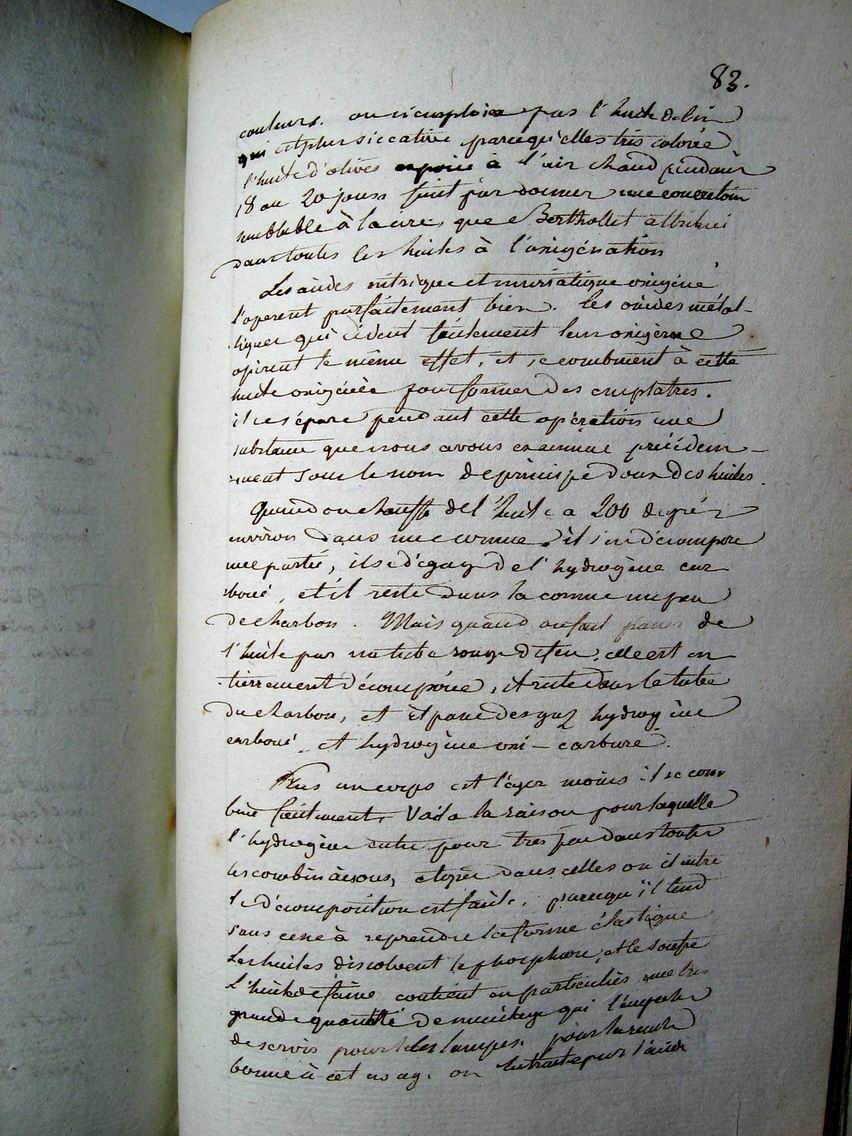 83.
couleurs. on n'emploie pas l'huile de lin
qui est plus siccative parcequ'elle est très colorée
l'huile d'olives exposée à l'air chaud pendant
18 ou 20 jours finit par donner une concretion
semblable à la cire, que Berthollet attribue
dans toutes les huiles à l'oxigénation
Les acides nitrique et muriatique oxigéné
l'operent parfaitement bien. les oxides métal-
liques qui cèdent facilement leur oxigène
opèrent le même effet, et se combinent à cette
huile oxigénée pour former des emplatres.
il se sépare pendant cette opération une
substance que nous avons examinée précédem-
ment sous le nom de principe doux des huiles.
Quand on chauffe de l'huile a 200 degrés
environ dans une cornue, il s'en décompose
une partie, il se dégage de l'hydrogène car
boné, et il reste dans la cornue un peu
de charbon. Mais quand on fait passer de
l'huile par un tube rouge de feu, elle est en
tierrement décomposée, il reste dans le tube
du charbon, et il passe des gaz hydrogène
carboné et hydrogène oxi-carburé.
Plus un corps est léger moins il se com
bine facilement. Voila la raison pour laquelle
l'hydrogène entre pour très peu dans toutes
les combinaisons, et que dans celles ou il entre
la décomposition est facile, parcequ'il tend
sans cesse à reprendre la forme élastique
Les huiles dissolvent le phosphore, et le soufre
L'huile de faine contient en particulier une très
grande quantité de mucilage qui l'empeche
de servir pour les lampes. pour la rendre
bonne à cet usage. on la traite par l'acide